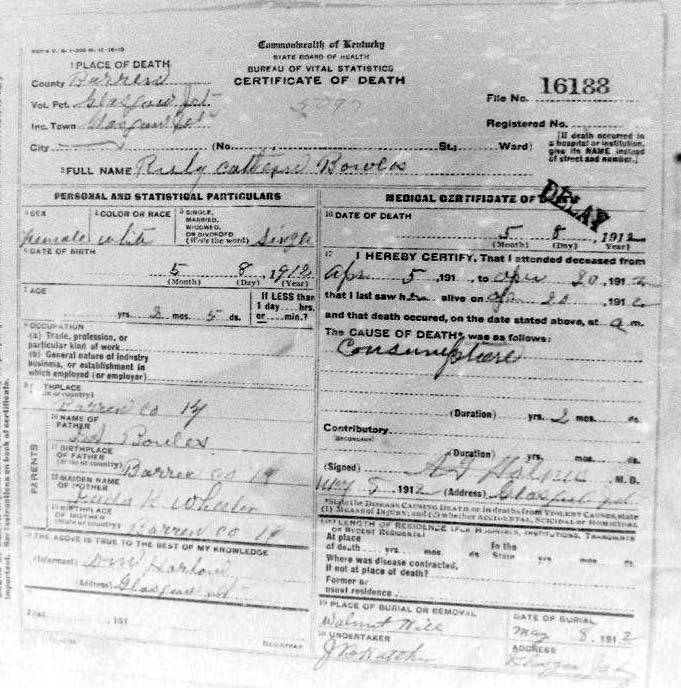 Commonwealth of Kentucky
STATE BOARD OF HEALTH
BUREAU OF VITAL STATISTICS
CERTIFICATE OF DEATH
1 PLACE OF DEATH
County Barren
Vot. Pct. Glasgow Jct
Inc. Town Glasgow Jct
City (No. St.; Ward)
File No. 16133
Registered No.
[If death occurred in
a hospital or institution,
give its NAME instead
of street and number.]
2 FULL NAME Ruly Catherine Bowles
PERSONAL AND STATISTICAL PARTICULARS
3 SEX
female
4 COLOR OR RACE
white
5 SINGLE,
MARRIED,
WIDOWED,
OR DIVORCED
(Write the word) Single
6 DATE OF BIRTH
5 8, 1912
(Month) (Day) (Year)
7 AGE
yrs. 2 mos. 5 ds.
If LESS than
1 day hrs.
or min.?
8 OCCUPATION
(a) Trade, profession, or
particular kind of work
(b) General nature of industry
business, or establishment in
which employed (or employer)
THPLACE
or country)
Barren Co Ky
10 NAME OF
FATHER
Bowles
11 BIRTHPLACE
OF FATHER
(State or country) Barren Co Ky
12 MAIDEN NAME
OF MOTHER
K Wheeler
13 BIRTHPLACE
OF MOTHER
(State or country) Barren Co Ky
PARENTS
14 THE ABOVE IS TRUE TO THE BEST OF MY KNOWLEDGE
(Informant) Harlow
(Address) Glasgow Jct
Filed , 191
REGISTRAR
MEDICAL CERTIFICATE OF
DELAY
16 DATE OF DEATH
5 8, 1912
(Month) (Day) (Year)
17 I HEREBY CERTIFY, That I attended deceased from
Apr 5 191, to Apr 20, 191
that I last saw her alive on 20 191
and that death occured, on the date stated above, at a m.
The CAUSE OF DEATH* was as follows:
(Duration) yrs. 2 mos. ds.
Contributory
(SECONDARY)
(Duration) yrs. mos. ds.
(Signed) M.D.
May 5, 1912 (Address)
*State the DISEASE CAUSING DEATH, or in deaths from VIOLENT CAUSES, state
(1) MEANS OF INJURY; and (2) whether ACCIDENTAL, SUICIDAL or HOMICIDAL
18 LENGTH OF RESIDENCE (FOR HOSPITALS, INSTITUTIONS, TRANSIENTS
OR RECENT RESIDENTS)
At place
of death yrs. mos. ds. In the
State yrs. mos. ds.
Where was disease contracted,
if not at place of death?
Former or
usual residence
19 PLACE OF BURIAL OR REMOVAL
Walnut Hill
DATE OF BURIAL
May 8, 1912
20 UNDERTAKER
ADDRESS
Important. See instructions on back of certificate.